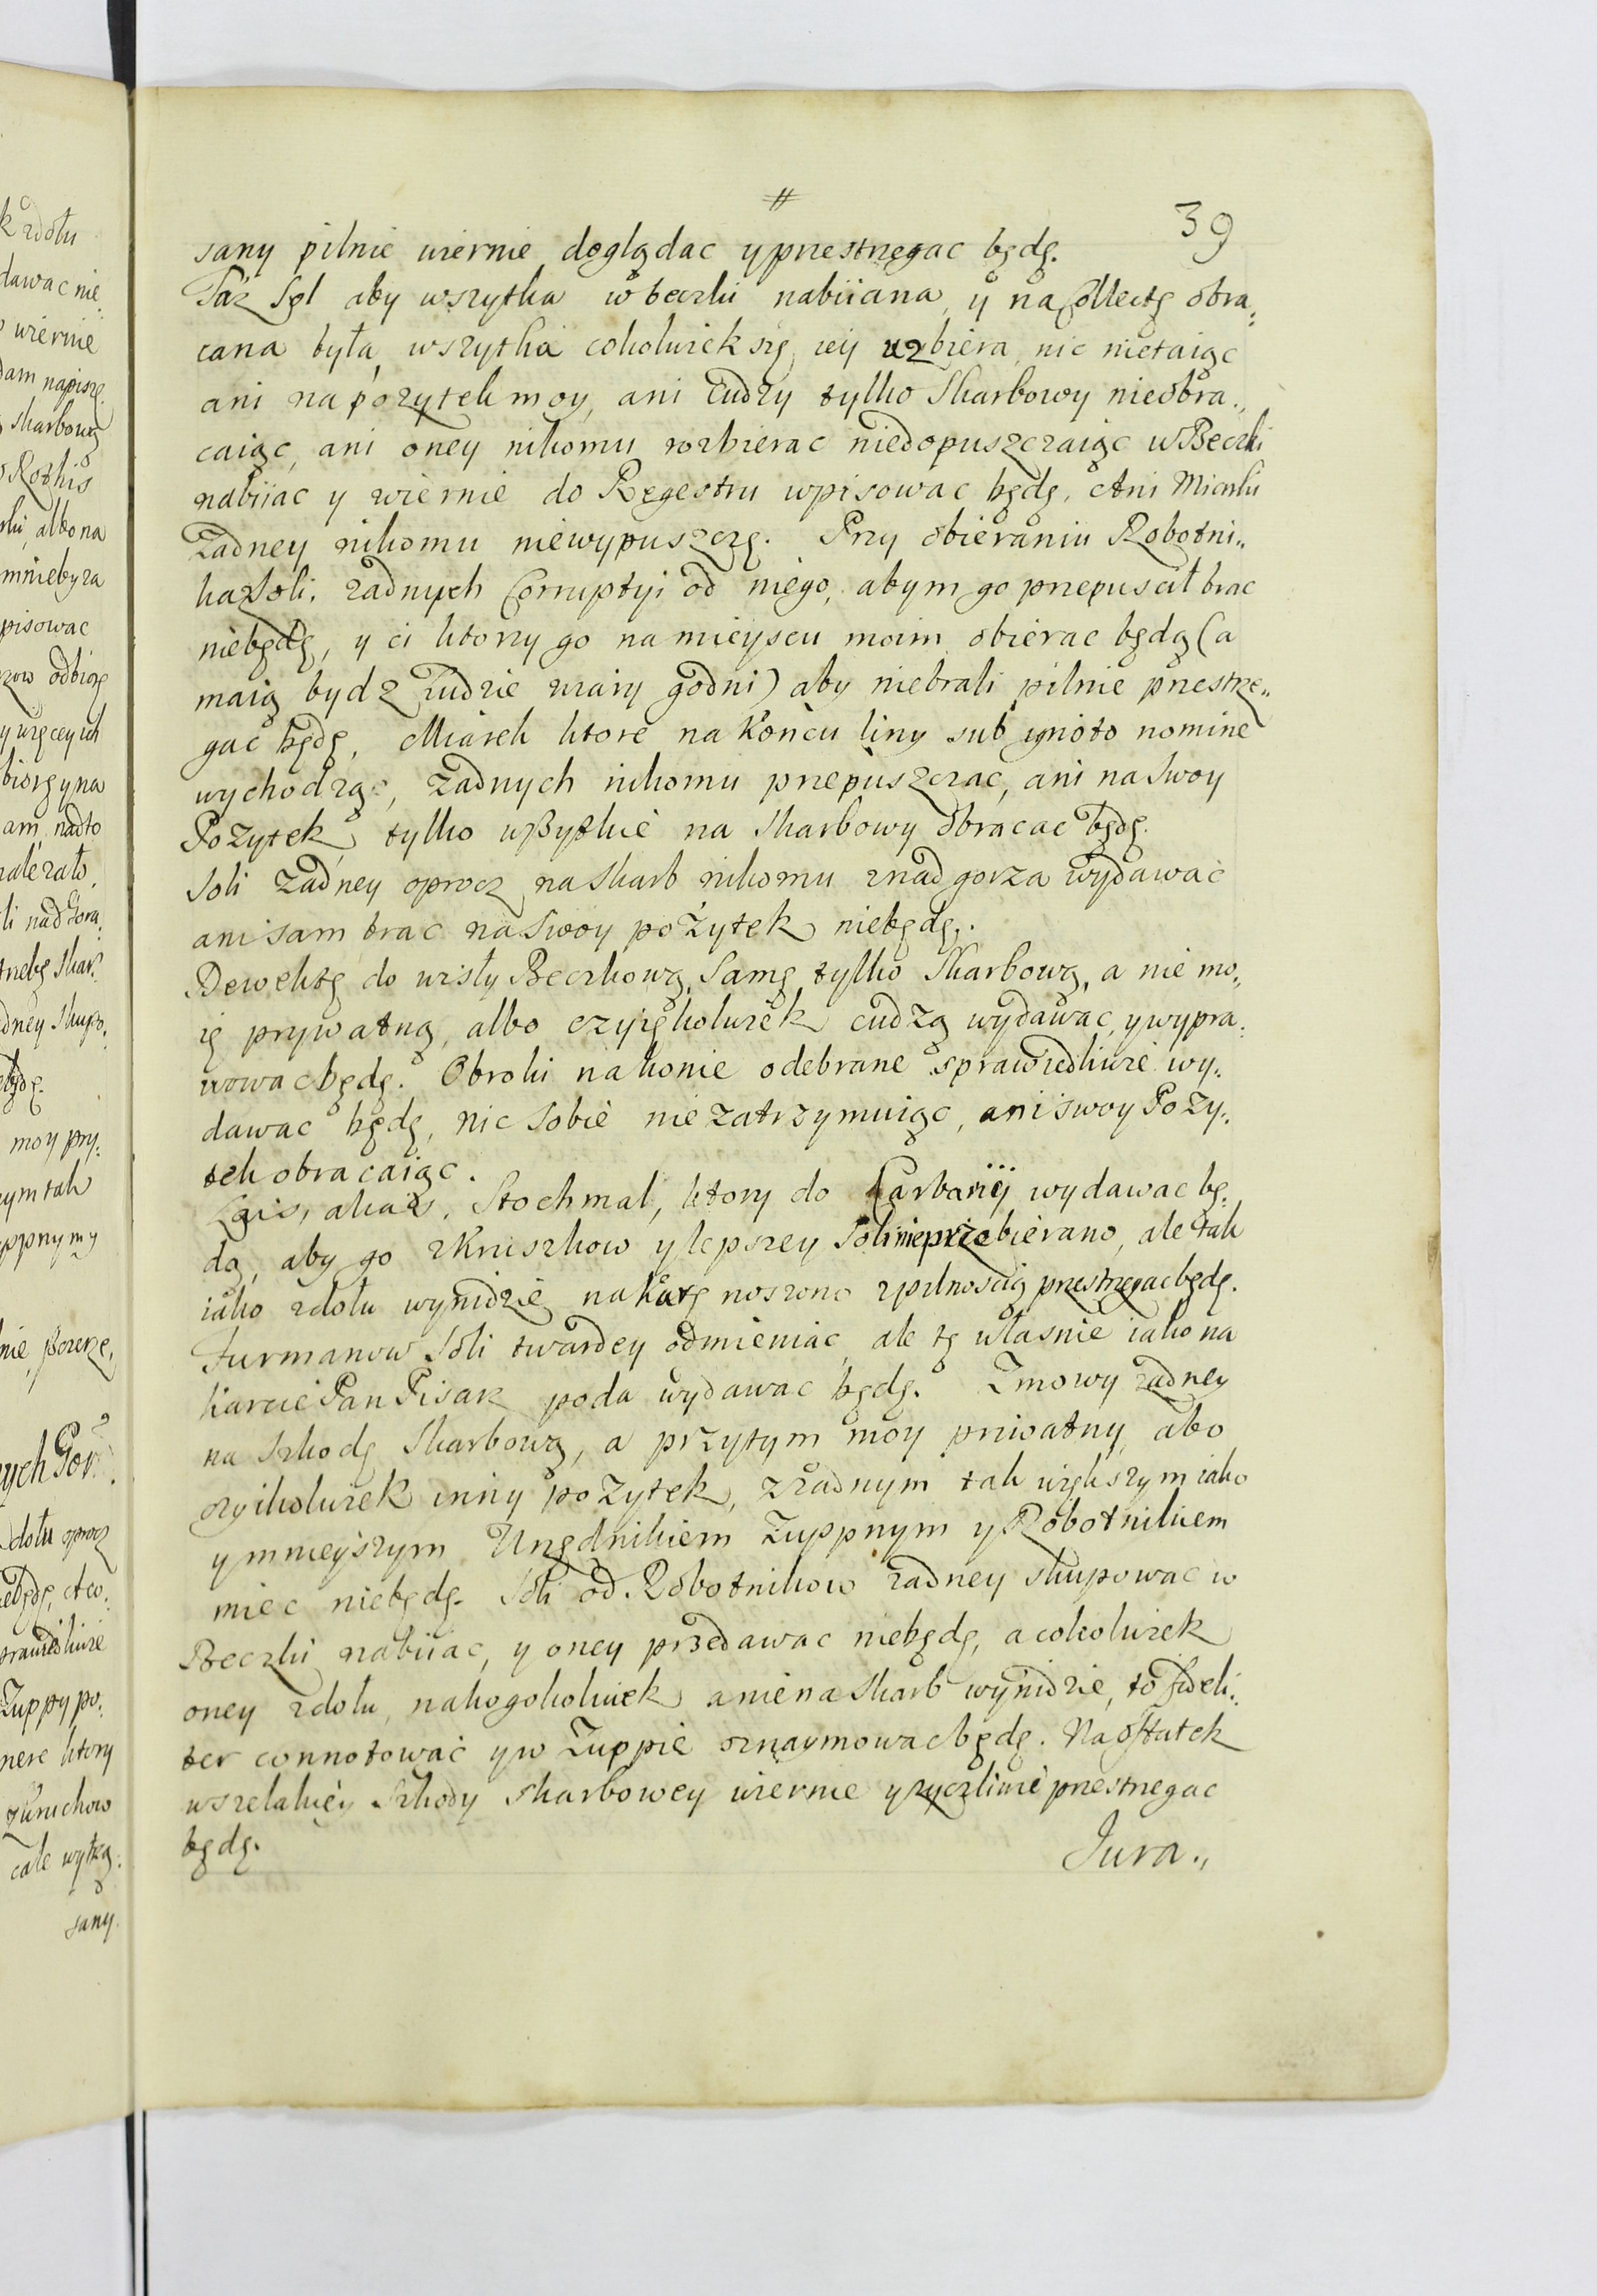 #
39
sany pilnie wiernie doglądac y przestrzegac będę.
Taż Sol aby wszytka w beczki nabiiana, y na Collectę obra:
cana była, wszytka cokolwiek się iey uzbiera, nic nietaiąc
ani na pożytek moy, ani cudzy tylko Skarbowy nieobra„
caiąc, ani oney nikomu rozbierac niedopuszczaiąc w Beczki
nabiiac y wiernie do Regestru wpisowac będę. Ani Miarki
Żadney nikomu niewypuszczę. Przy obieraniu Robotni„
ka z Soli, żadnych Corruptyi od niego, abym go przepuscił brac
niebędę, y ci ktorzy go na mieyscu moim obierac będą (a
maią bydz Ludzie wiary godni) aby niebrali pilnie przestrze„
gać będę. Miarek ktore na końcu liny sub ignoto nomine
wychodzą, Żadnych nikomu przepuszczac, ani na Swoy
Pożytek, tylko wszytkie na Skarbowy obracac będę.
Soli Żadney oprocz na Skarb nikomu z nad gorza wydawać
ani sam brac na Swoy pożytek niebędę.
Dewektę do wisły Beczkową, Samę tylko Skarbową, a nie mo„
ię prywatną, albo czyiękolwiek cudzą wydawac, y wypra:
wowac będę. Obroki na konie odebrane sprawiedliwie wy„
dawac będę, nic Sobie nie zatrzymuiąc, ani swoy Poży„
tek obracaiąc.
Lgis, akaz, Stochmal, ktory do Carbarij wydawac bę„
dą, aby go z Kruszkow y lepszey Soli nieprzebierano, ale tak
iako z dołu wynidzie na Katę noszono z pilnoscią przestrzegac będę.
Furmanow Soli twardey odmieniac, ale tę własnie iako na
Karcie Pan Pisarz poda wydawac będę. Zmowy żadney
na Szkodę Skarbową, a przytym moy priwatny, abo
czyikolwiek inny pożytek, z Żadnym tak większym iako
y mnieyszym Urzędnikiem Żuppnym y Robotnikiem
miec niebędę. Soli od Robotnikow żadney skupowac w
Beczki nabiiac, y oney przedawac niebędę, a cokolwiek
oney z dołu, na kogokolwiek a nie na Skarb wynidzie, to fideli„
ter connotować y w Żuppie oznaymowac będę. Na ostatek
wszelakiey Szkody skarbowey wiernie y życzliwie przestrzegac
będę.
Jura„